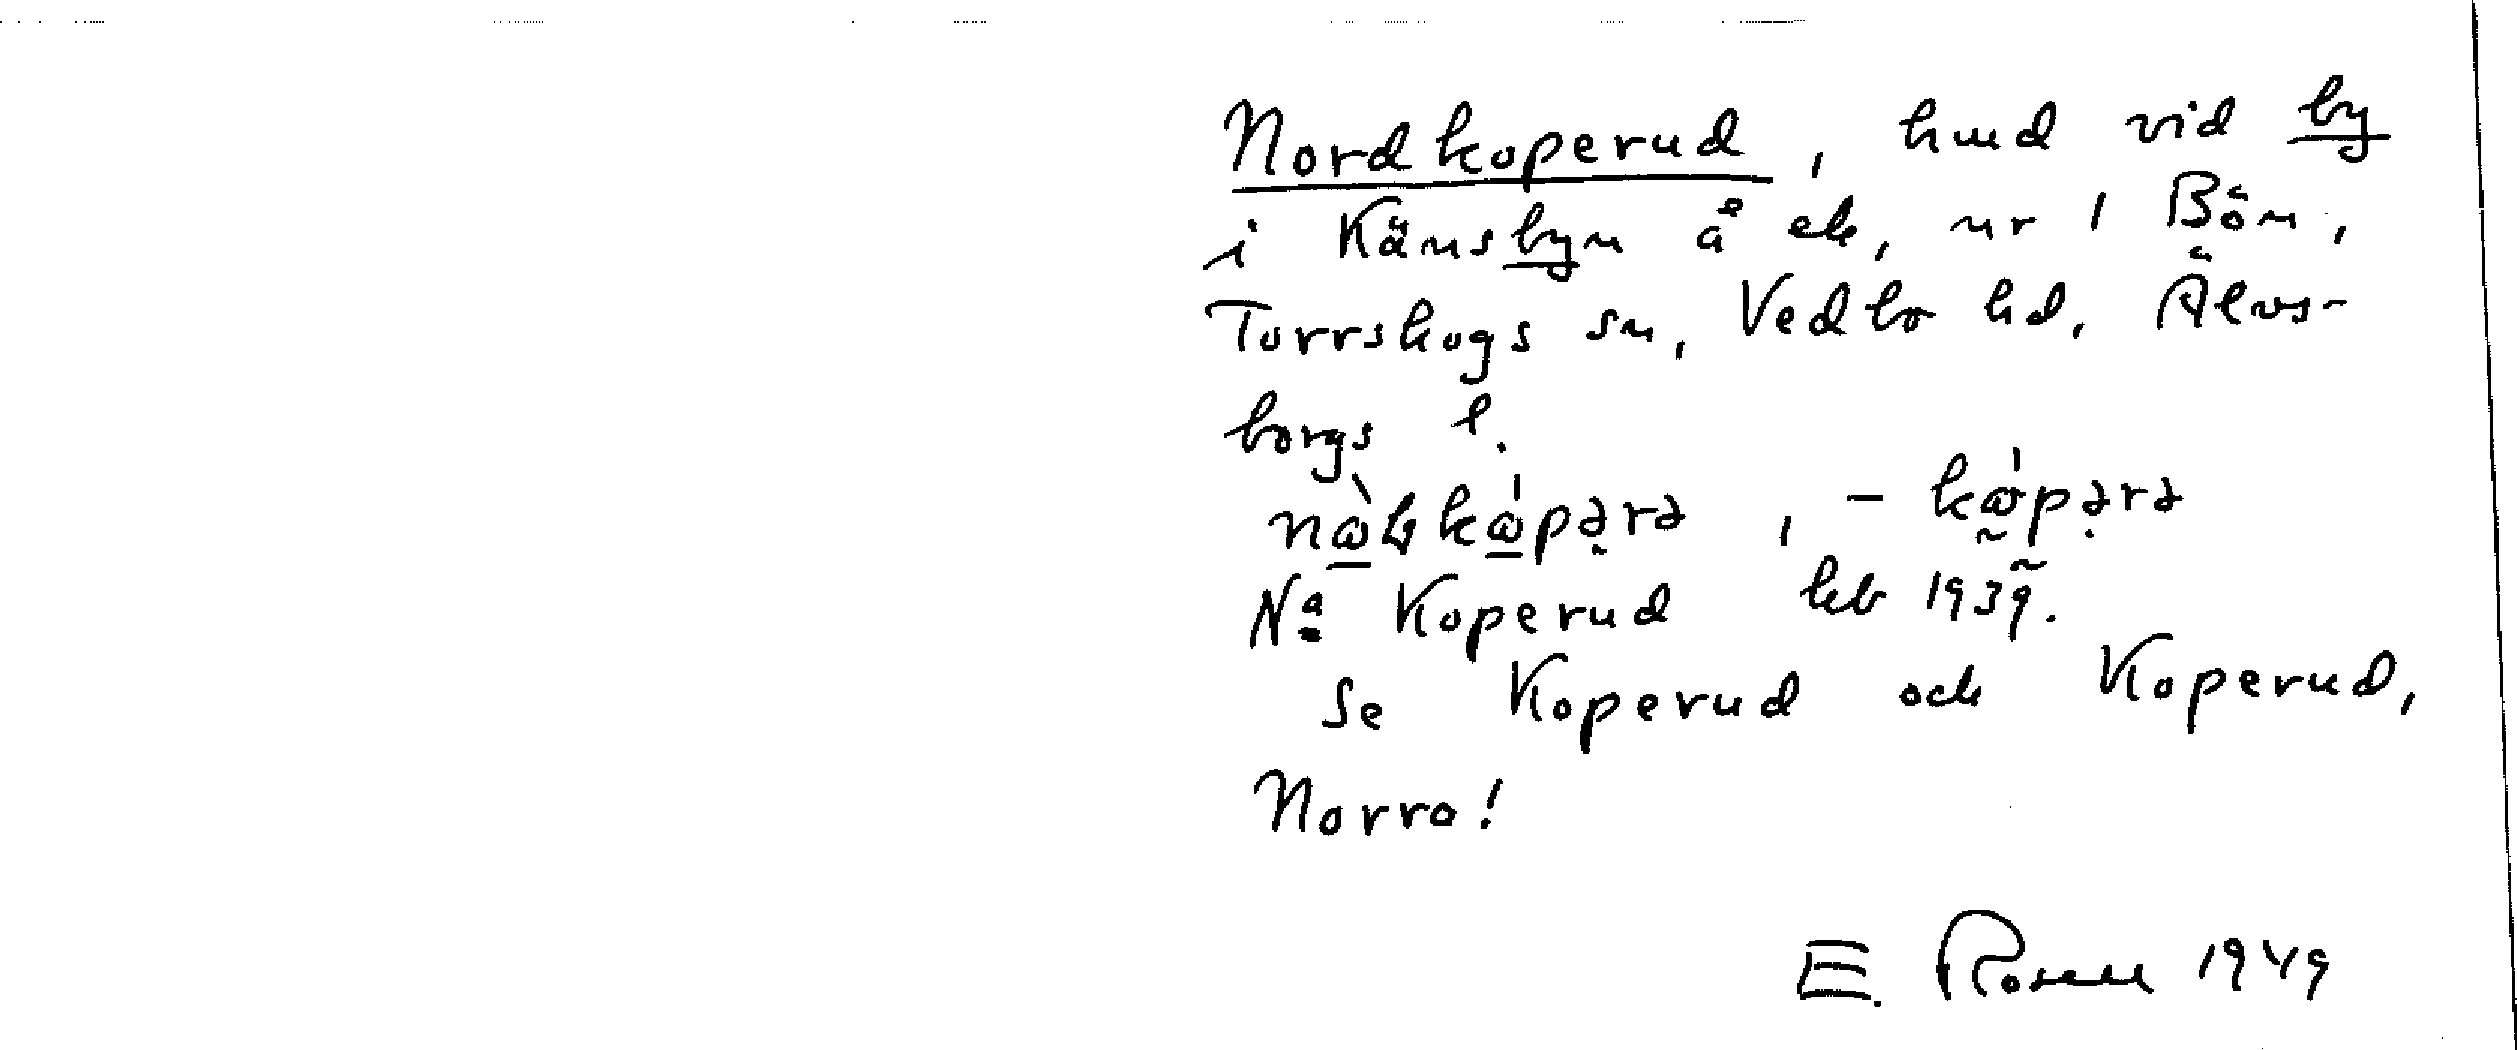 Nordkoperud, hmd vid by
i Känsbyn å ek, nr 1 Bön,
Torrskogs sn, Vedbo hd, Älvs-
borgs l.
Nª Koperud kb 1939.
Se Koperud och Koperud,
Norra!
E. Rosell 1949